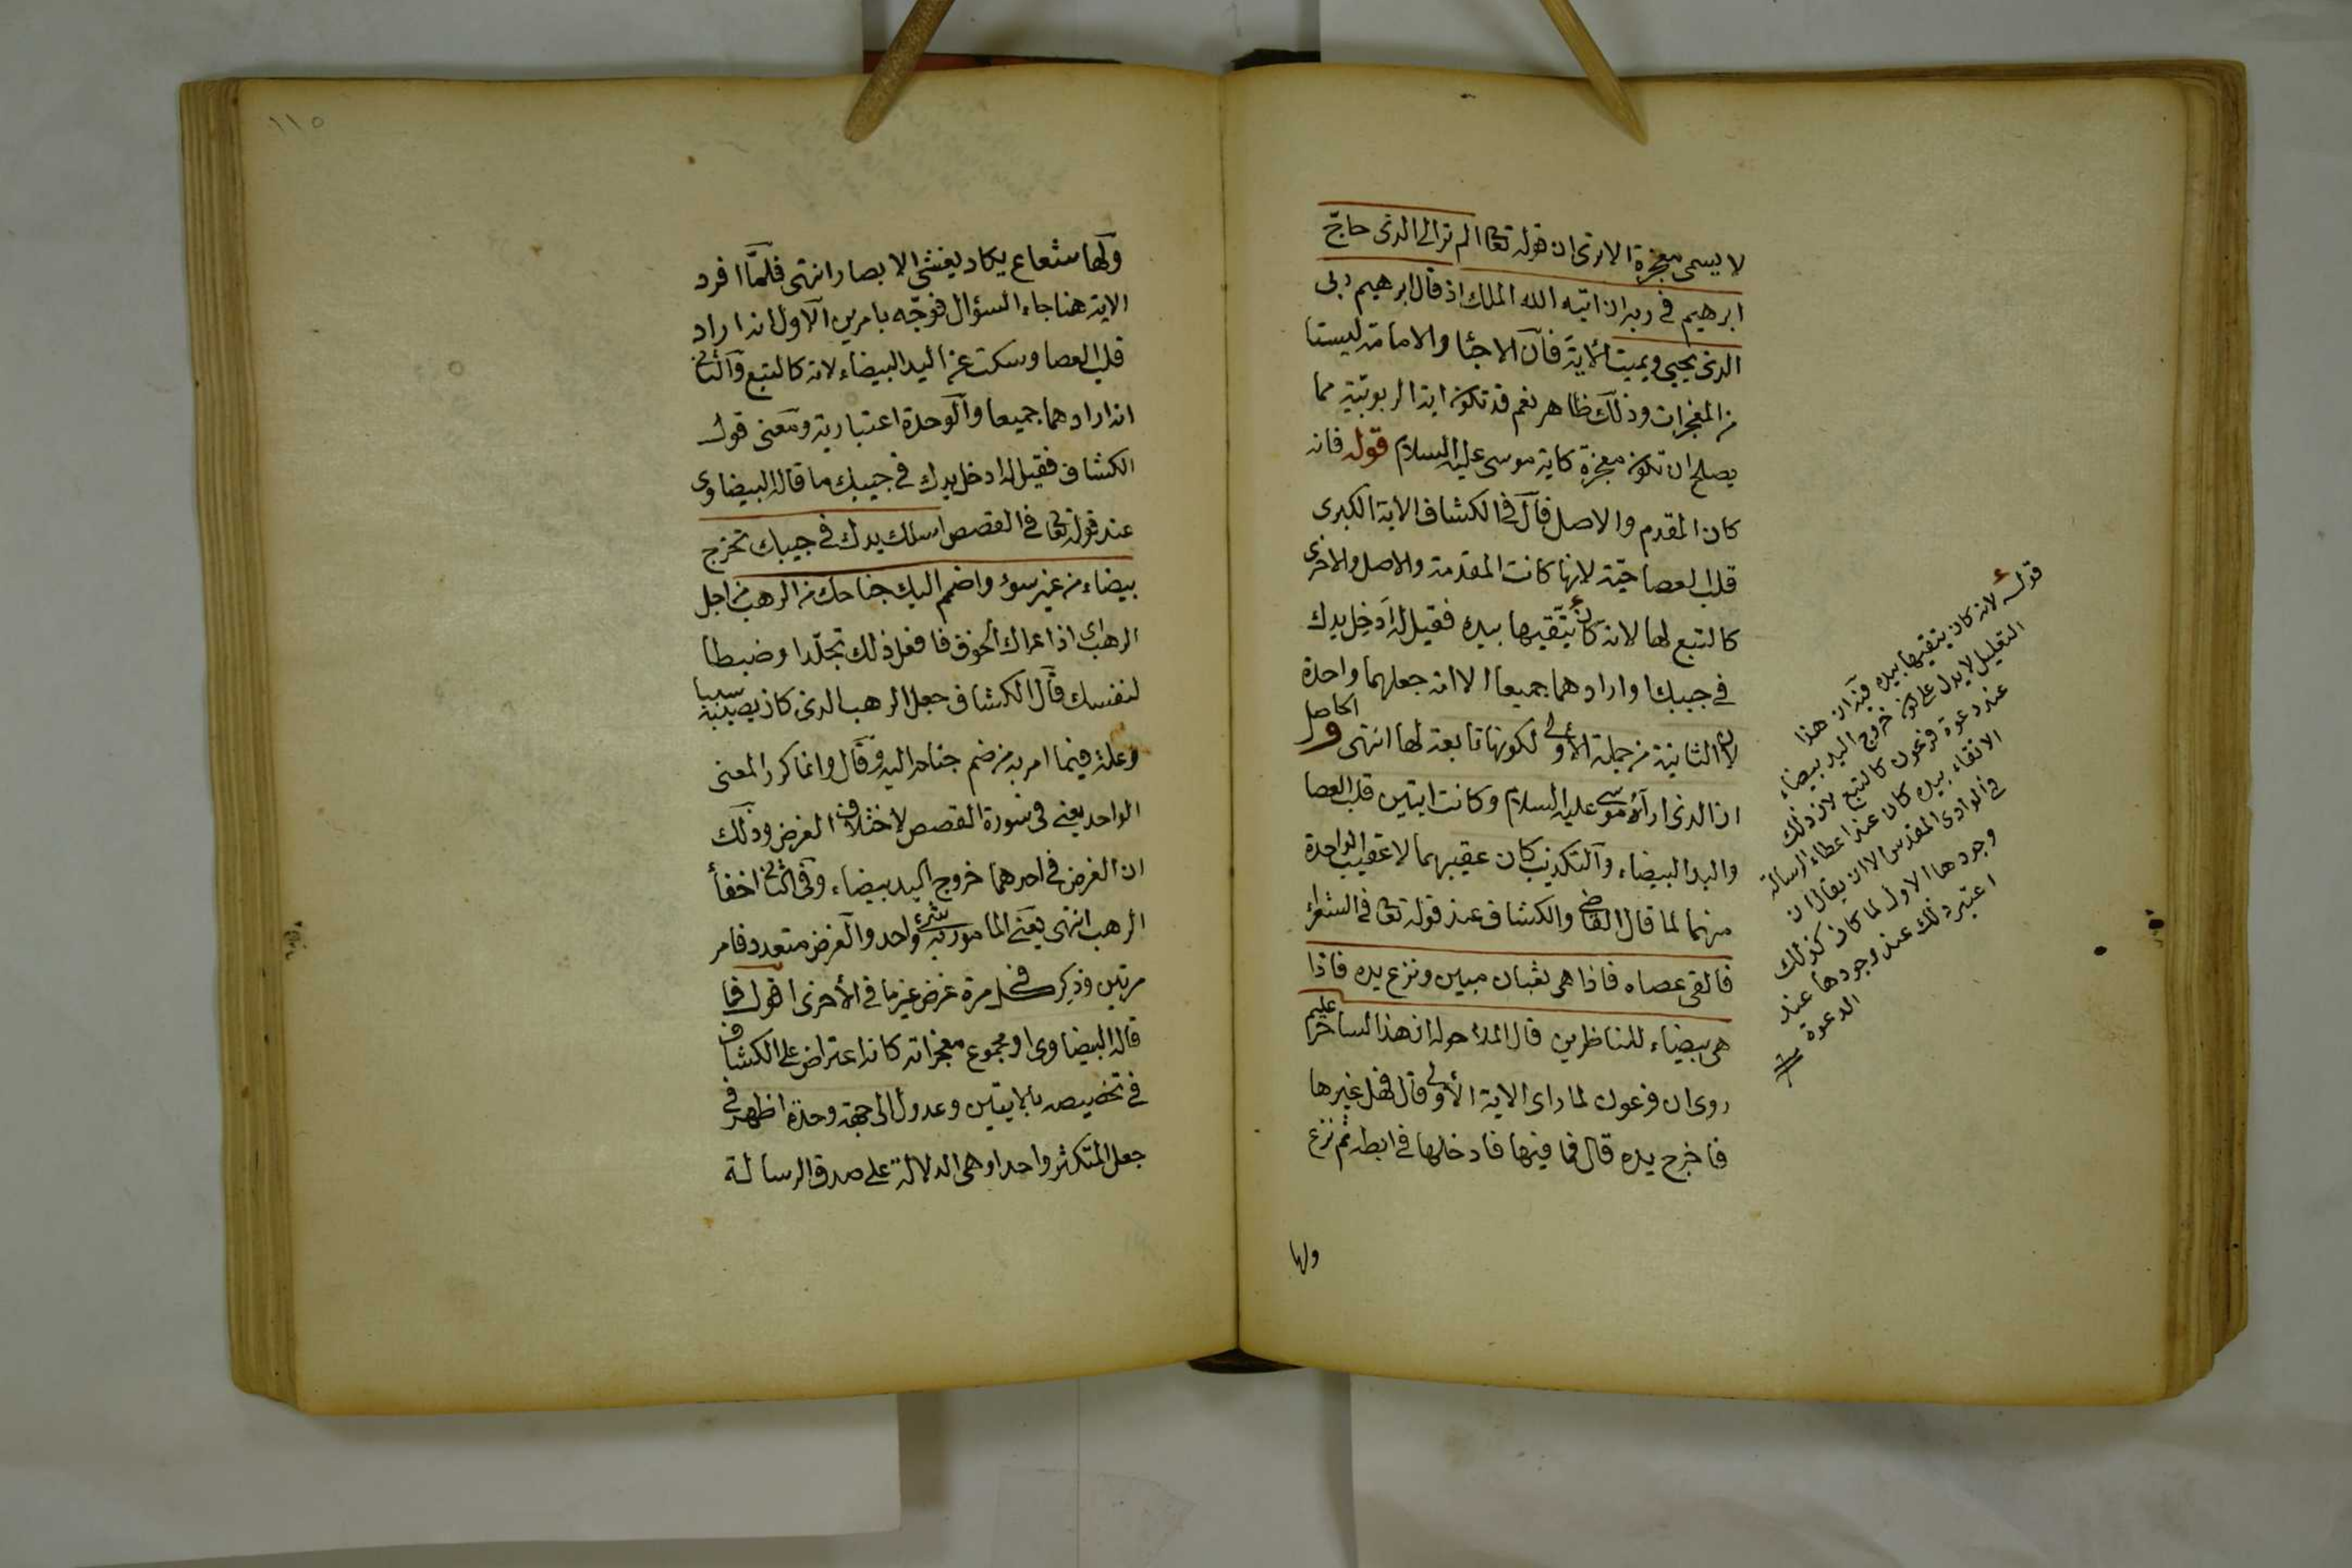 لا يسمى معجزة الا ترى ان قوله تعا الم تر الى الذى حاجّ
ابرهيم فى ربه ان اتيه الله الملك اذ قال ابرهيم ربى
الذى يحيى ويميت الاية فان الاحيا والاماتة ليستا
من المعجزات وذلك ظاهر نعم قد تكون اية الربوبية مما
يصلح ان تكون معجزة كاية موسى عليه السلام قوله فانه
كان المقدم والاصل قال فى الكشاف الاية الكبرى
قلب العصا حية لانها كانت المقدمة والاصل والاخرى
كالتبع لها لانه كان يتقيها بيده فقيل له ادخل يدك
فى جيبك او ارادهما جميعا الا انه جعلهما واحدة
لان الثانية من جملة الاولى لكونها تابعة لها انتهى والحاصل
ان الذى اراه موسى عليه السلام وكانت ايتين قلب العصا
واليد البيضاء والتكذيب كان عقيبهما لا عقيب الواحدة
منهما لما قال القاضى والكشاف عند قوله تعا فى الشعراء
فالقى عصاه فاذا هى ثعبان مبين ونزع يده فاذا
هى بيضاء للناظرين قال للملا حوله ان هذا لساحر عليم
روى ان فرعون لما راى الاية الاولى قال فهل غيرها
فاخرج يده قال فما فيها فادخلها فى ابطه ثم نزع
ولها
قوله لانه كان يتقيها بيده فيه ان هذا
التعليل لا يدل على كون خروج اليد بيضاء
عند دعوة فرعون كالتبع لان ذلك
الاتقاء بيده كان عند اعطاء الرسالة
فى الوادى المقدس الا ان يقال ان
وجودها الاول لما كان كذلك
اعتبر ذلك عند وجودها عند
الدعوة
١١٥
ولها شعاع يكاد يغشى الابصار انتهى فلما افرد
الاية هنا جاء السؤال فوجّه بامرين الاول انه اراد
قلب العصا وسكت عن اليد البيضاء لانه كالتبع والثانى
انه ارادهما جميعا والوحدة اعتبارية ومعنى قول
الكشاف فقيل له ادخل يدك فى جيبك ما قاله البيضاوى
عند قوله تعا فى القصص اسلك يدك فى جيبك تخرج
بيضاء من غير سوء واضمم اليك جناحك من الرهب من اجل
الرهب اى اذا عراك الخوف فافعل ذلك تجلّدا وضبطا
لنفسك قال الكشاف جعل الرهب الذى كان يصيبه سببا
وعلة فيما امر به من ضم جناحه اليه وقال وانما كرر المعنى
الواحد يعنى فى سورة القصص لاختلاف الغرض وذلك
ان الغرض فى احدهما خروج اليد بيضاء وفى الثانى اخفاء
الرهب انتهى يعنى المامور به شئ واحد والغرض متعدد فامر
مرتين وذكر فى كل مرة غرض غير ما فى الاخرى اقول فما
قاله البيضاوى او مجموع معجزاته كانه اعتراض على الكشاف
فى تخصيصه بالايتين وعدول الى جهة وحدة اظهر فى
جعل المتكثر واحدا وهى الدلالة على صدق الرسالة